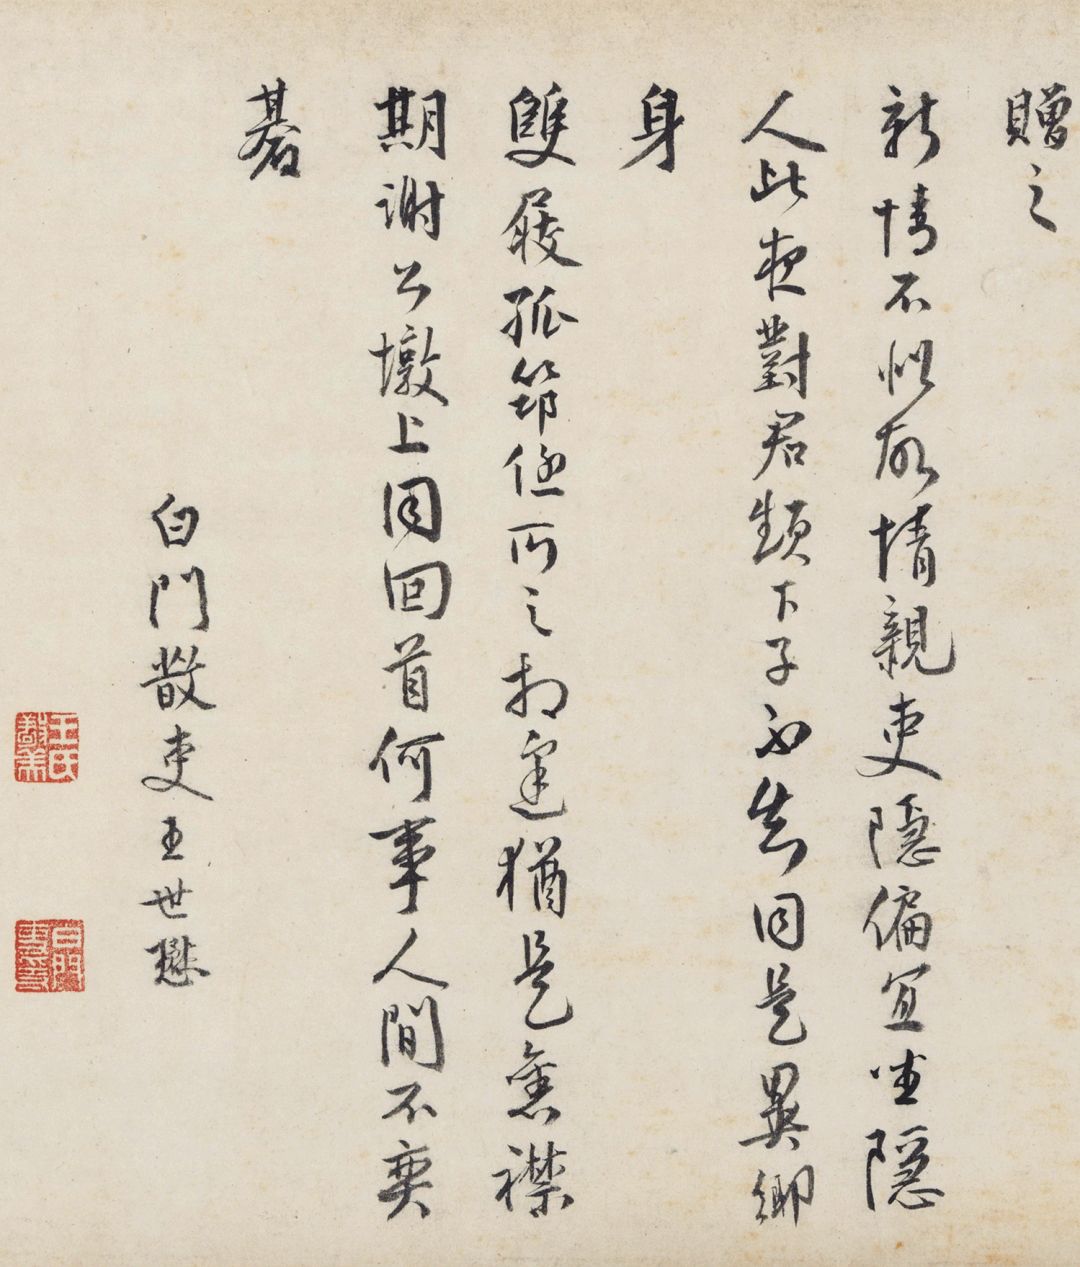 贈之
新情不似故情親吏隱偏宜坐隱
人此夜對君頻下子不知同是異鄉
身
雙屐孤筇任所之相逢猶是舊襟
期謝公墩上同回首何事人間不奕
碁
白門散吏王世懋
王氏敬美